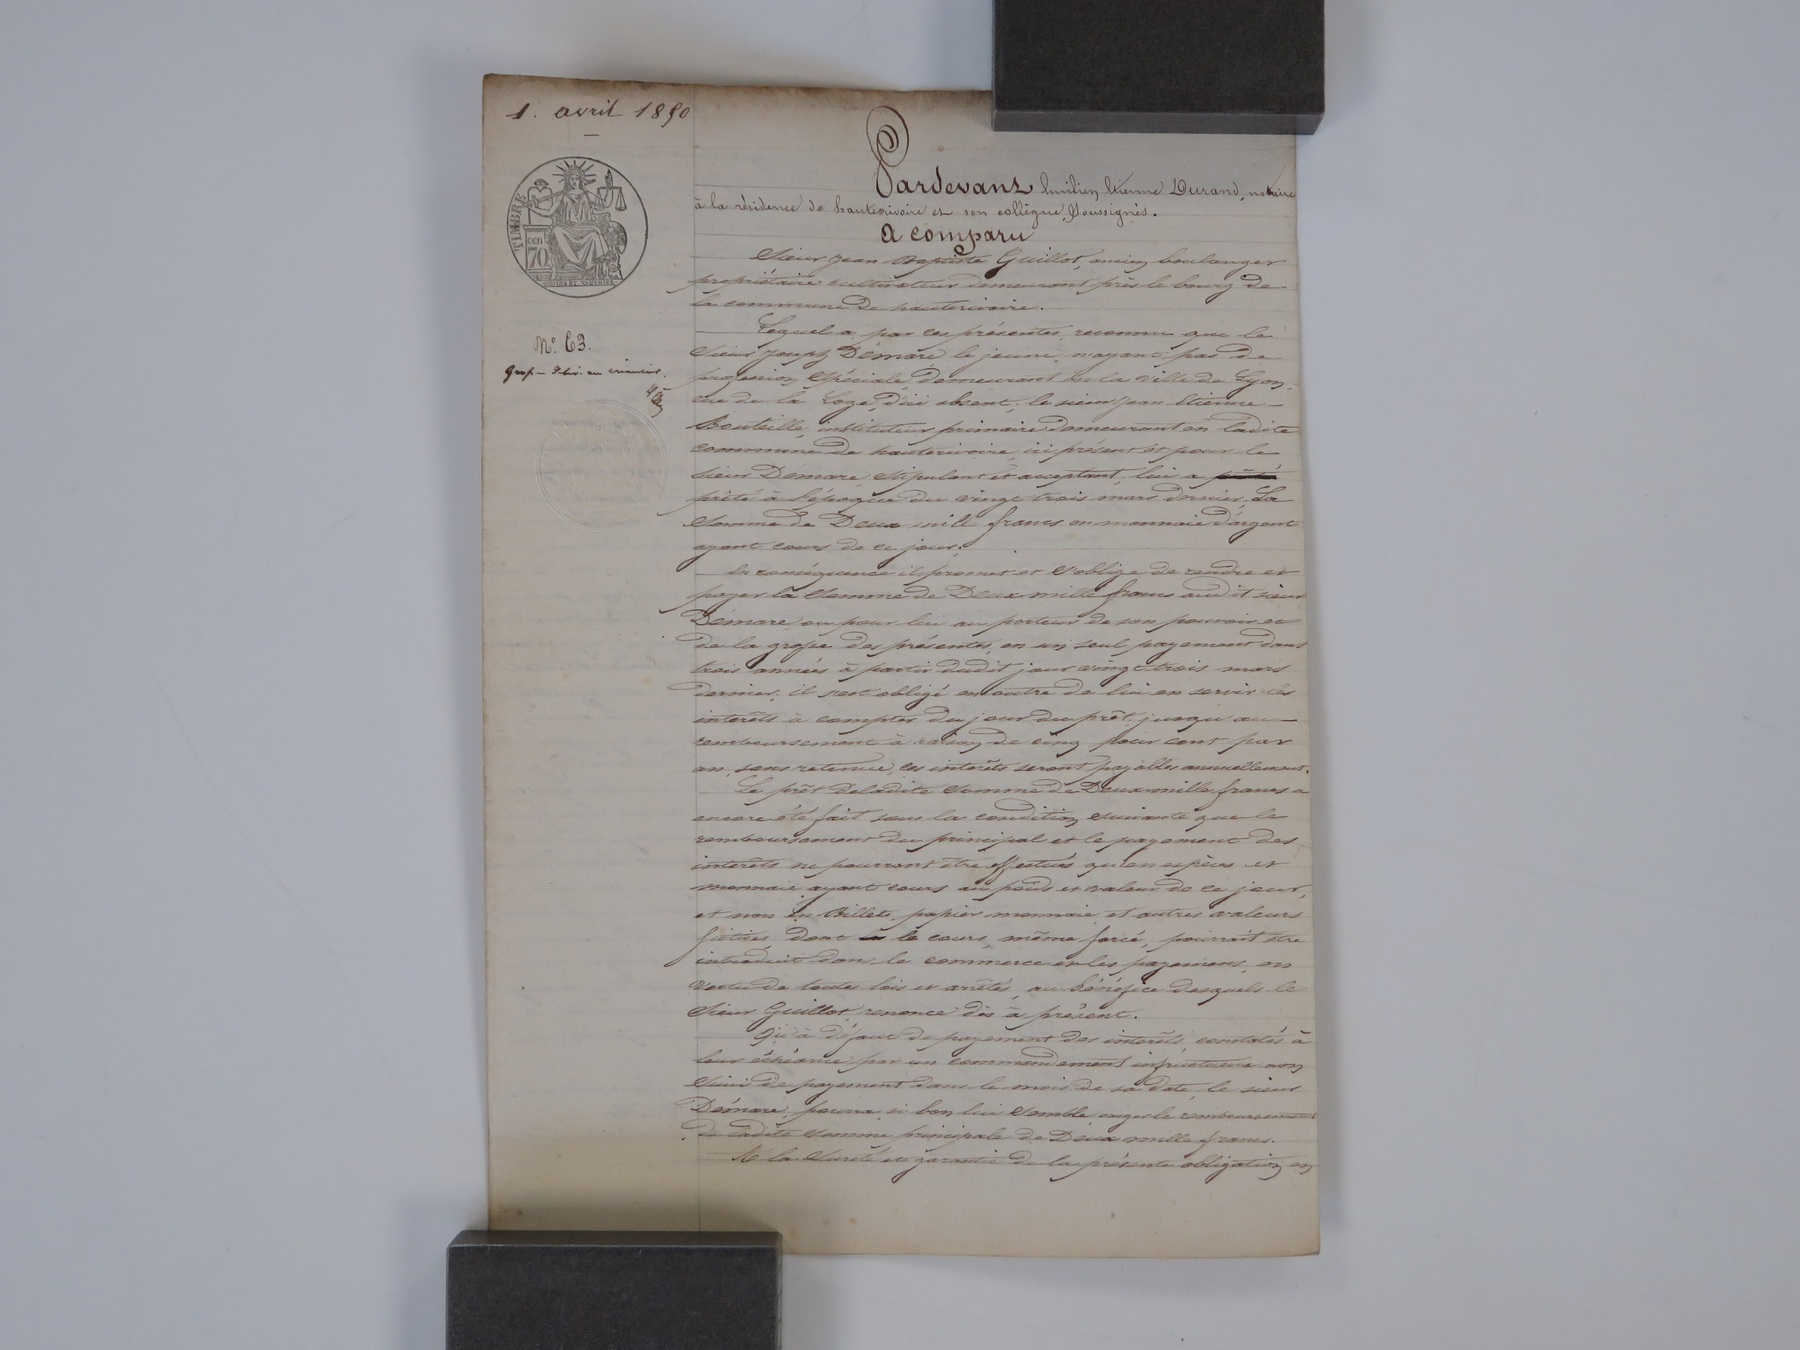 1. avril 1850
TIMBRE
cen
70
Pardevant Emilien Etienne Durand, notaire
à la résidence de hauterivoire et son collègue, Soussignés.
A comparu
Sieur Jean Baptiste Guillot, ancien boulanger
propriétaire cultivateur demeurant près le bourg de
la commune de hauterivoire.
N° 63.
Lequel a par ces présentes, reconnu que le
Sieur Joseph Démare le jeune, n'ayant pas de
profession Spéciale, demeurant en la ville de Lyon,
rue de la Loge, d'ici absent, le sieur Jean Etienne
Bouteille, instituteur primaire demeurant en ladite
commune de hauterivoire, ici présent et pour le
sieur Démare Stipulant et acceptant, lui a
prêté à l'époque du vingt trois mars dernier, La
Somme de Deux mille francs en monnaie d'argent
ayant cours de ce jour.
En conséquence il promet et s'oblige de rendre et
payer la Somme de Deux mille francs audit sieur
Démare, ou pour lui au porteur de son pouvoir et
de la grosse des présentes, en un seul payement dans
trois années à partir dudit jour vingt trois mars
dernier; il s'est obligé en outre de lui en servir les
interêts à compter du jour du prêt jusqu'au
remboursement à raison de cinq pour cent par
an, sans retenue, ces interêts seront payables annuellement.
Le prêt de ladite Somme de Deux mille francs a
encore été fait sous la condition suivante que le
remboursement du principal et le payement des
interêts ne pourront être effectués qu'en espèces et
monnaie ayant cours au poids et valeur de ce jour,
et non en Billets, papier monnaie, et autres valeurs
fictives, dont le cours, même forcé, pourrait être
introduit dans le commerce et les payemens, en
vertu de toutes lois et arrêtés, au bénéfice desquels le
Sieur Guillot, renonce dès à présent.
Qu'à défaut de payement des interêts constatés à
leur échéance par un commandement infructueux non
Suivi de payement dans le mois de sa date, le sieur
Démare, pourra, si bon lui Semble exiger le remboursement
de ladite Somme principale de Deux mille francs.
A la Sureté et garantie de la présente obligation en